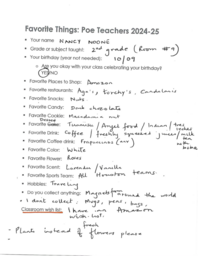 Favorite Things: Poe Teachers 2024-25
• Your name: NANCY NOONE
• Grade or subject taught: 2nd grade (Room #9)
• Your birthday (year not needed): 10/09
• Are you okay with your class celebrating your birthday?
YES/NO
• Favorite Places to Shop: Amazon
• Favorite restaurants: Torchy's, Candelari's
• Favorite Snacks: Nuts
• Favorite Candy: Dark chocolate
• Favorite Cookie: Macadamia nut
• Favorite Tiramisu / Angel food /
• Favorite Drink: Coffee / freshly squeezed juices / milk
• Favorite Coffee drink:
• Favorite Color: White
• Favorite Flower: Roses
• Favorite Scent: Lavender / Vanilla
• Favorite Sports Team: All Houston teams
• Hobbies: Traveling
• Do you collect anything: Magnets from around the world
I dont collect, mugs, pens, bags,
Classroom wish list: I have an Amazon
wish-list.
fresh
- Plants instead of flowers please